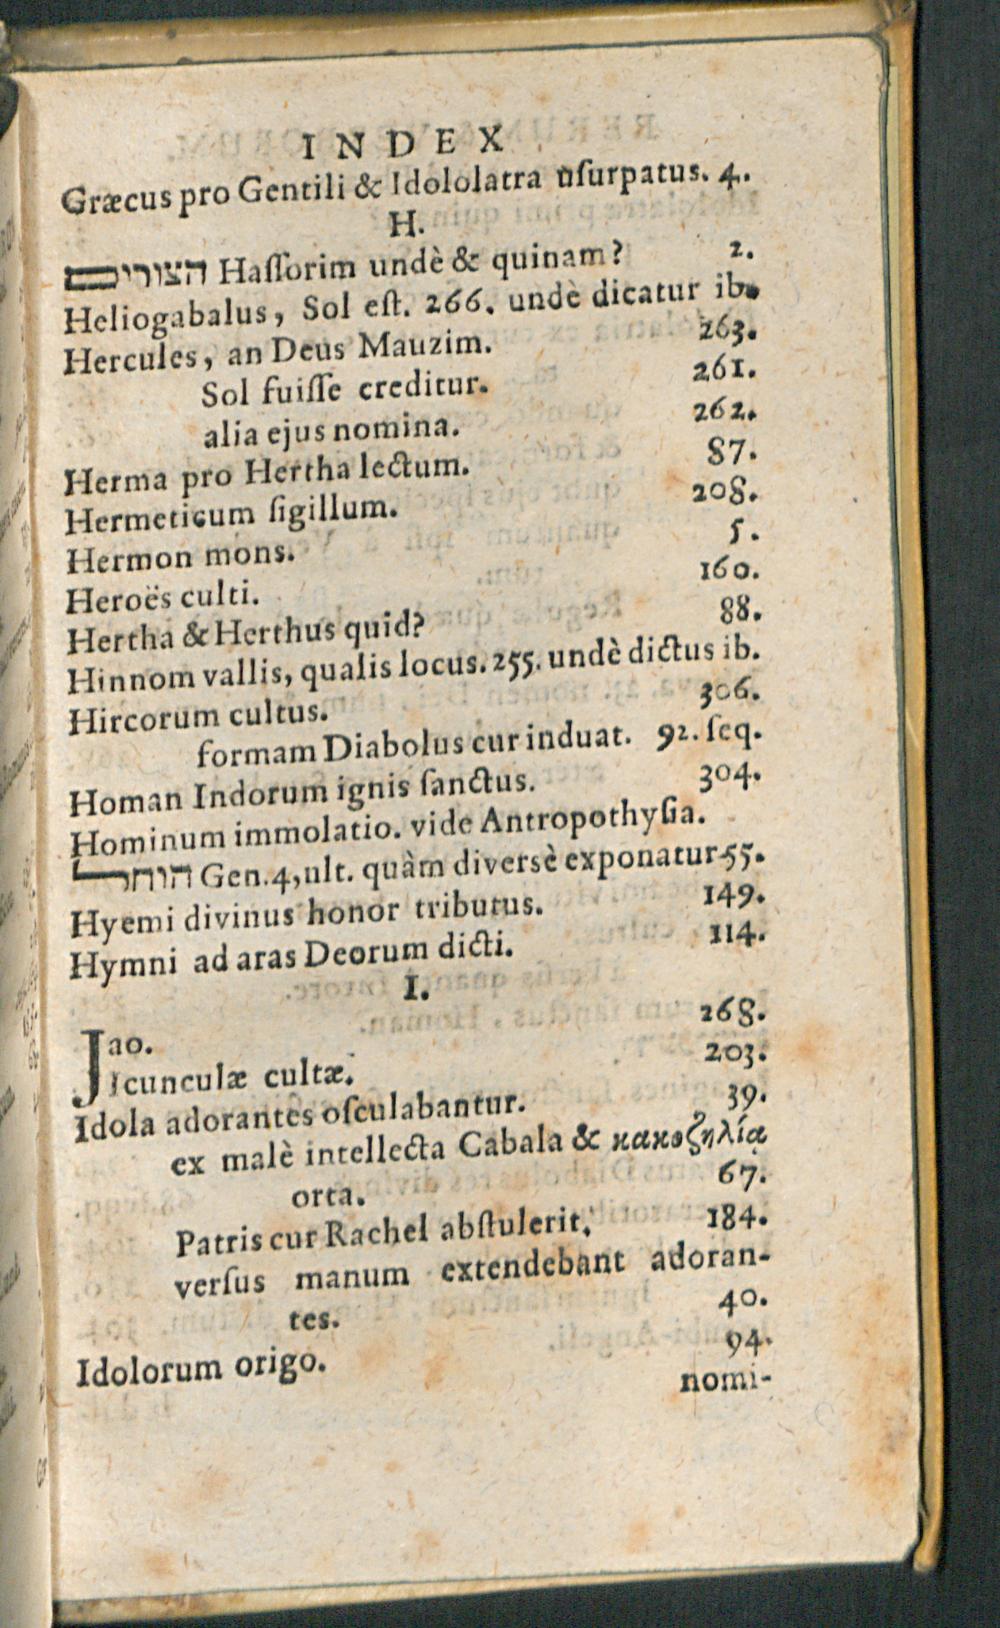 INDEX
Græcus pro Gentili & Idololatra uſurpatus. 4.
H.
הצורים Haſſorim undè & quinam? 2.
Heliogabalus, Sol eſt. 266. undè dicatur ib.
Hercules, an Deus Mauzim. 263.
Sol fuiſſe creditur. 261.
alia ejus nomina. 262.
Herma pro Hertha lectum. 87.
Hermeticum ſigillum. 208.
Hermon mons. 5.
Heroës culti. 160.
Hertha & Herthus quid? 88.
Hinnom vallis, qualis locus. 255. undè dictus ib.
Hircorum cultus. 306.
formam Diabolus cur induat. 92. ſeq.
Homan Indorum ignis ſanctus. 304.
Hominum immolatio. vide Antropothyſia.
הוחל Gen. 4, ult. quàm diversè exponatur 55.
Hyemi divinus honor tributus. 149.
Hymni ad aras Deorum dicti. 114.
I.
Jao. 268.
Icunculæ cultæ. 203.
Idola adorantes oſculabantur. 39.
ex malè intellecta Cabala & κακοζηλίᾳ
orta. 67.
Patris cur Rachel abſtulerit. 184.
verſus manum extendebant adoran-
tes. 40.
Idolorum origo. 94.
nomi-